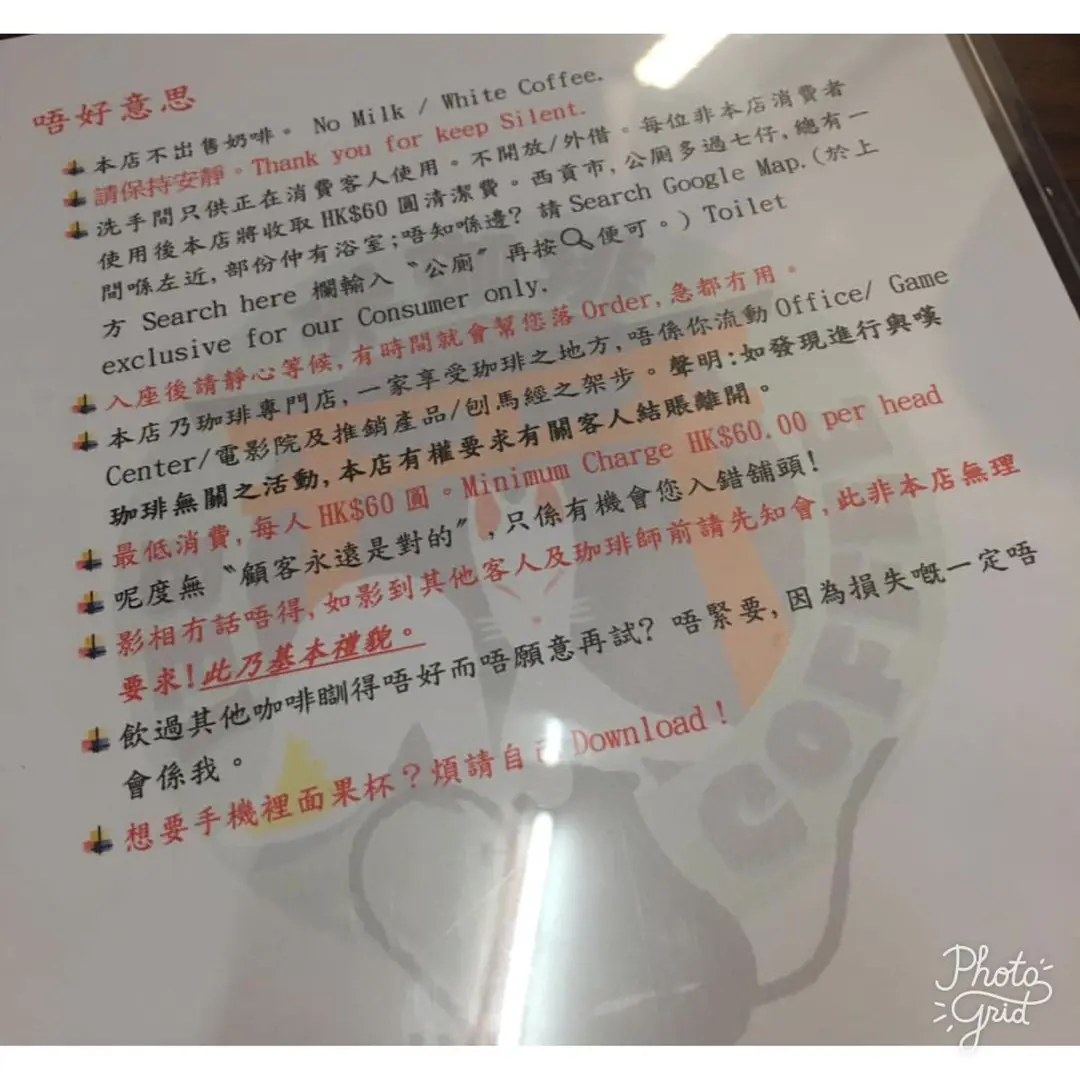 唔好意思
本店不出售奶啡。 No Milk / White Coffee.
請保持安靜。Thank you for keep Silent.
洗手間只供正在消費客人使用。不開放/外借。每位非本店消費者
使用後本店將收取HK$60圓清潔費。西貢市,公厠多過七仔,總有一
間喺左近,部份仲有浴室;唔知喺邊? 請Search Google Map.(於上
方 Search here 欄輸入〝公厠〞再按🔍便可。) Toilet
exclusive for our Consumer only.
入座後請靜心等候,有時間就會幫您落Order,急都冇用。
本店乃珈琲專門店,一家享受珈琲之地方,唔係你流動Office/ Game
Center/電影院及推銷產品/刨馬經之架步。聲明:如發現進行與嘆
珈琲無關之活動,本店有權要求有關客人結賬離開。
最低消費,每人HK$60圓。Minimum Charge HK$60.00 per head
呢度無〝顧客永遠是對的〞,只係有機會您入錯舖頭!
影相冇話唔得,如影到其他客人及珈琲師前請先知會,此非本店無理
要求!此乃基本禮貌。
飲過其他咖啡瞓得唔好而唔願意再試? 唔緊要,因為損失嘅一定唔
會係我。
想要手機裡面果杯?煩請自己Download!
COFFEE
Photo
Grid